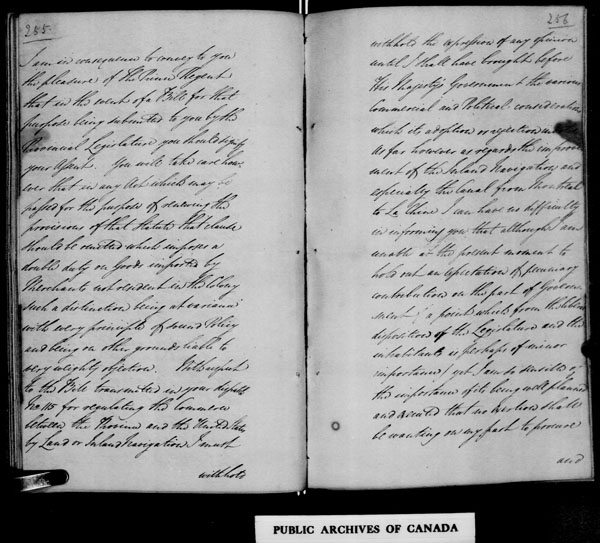 255.
I am in consequence to convey to you
the pleasure of The Prince Regent
that in the event of a Bill for that
purpose being submitted to you by the
Provincial Legislature you should signify
your Assent. You will take care how-
ever that in any Act which may be
passed for the purpose of renewing the
provisions of that Statute that clause
should be omitted which imposes a
double duty on Goods imported by
Merchants not resident in the Colony
such a distinction being at variance
with every principle of sound Policy
and being on other grounds liable to
very weighty objection. With respect
to the Bill transmitted in your dispatch
No 115 for regulating the Commerce
between the Province and the United States
by Land or Inland Navigation I must
withhold
256
withhold the expression of any opinion
until I shall have brought before
His Majesty's Government the various
Commercial and Political considerations
which its adoption or rejection
As far however as regards the improve
ment of the Inland Navigation, and
especially the Canal from Montreal
to La Chine I can have no difficulty
in informing you that although I am
unable at the present moment to
hold out an expectation of pecuniary
contribution on the part of Govern
ment (a point which from the liberal
disposition of the Legislature and the
inhabitants is perhaps of minor
importance) yet I am so sensible of
the importance of its being well planned
and executed that no exertion shall
be wanting on my part to procure
and
PUBLIC ARCHIVES OF CANADA